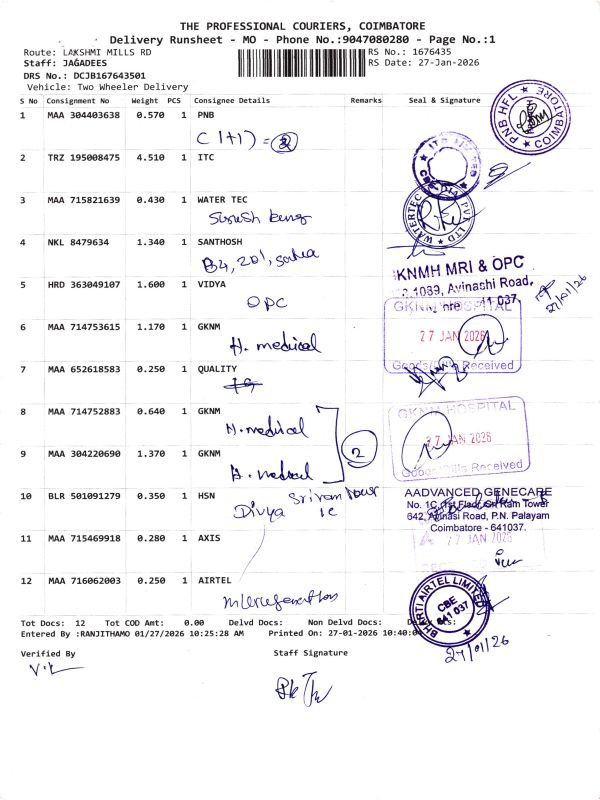 THE PROFESSIONAL COURIERS, COIMBATORE
Delivery Runsheet - MO - Phone No.:9047080280 - Page No.:1
Route: LAKSHMI MILLS RD
RS No.: 1676435
Staff: JAGADEES
RS Date: 27-Jan-2026
DRS No.: DCJB167643501
Vehicle: Two Wheeler Delivery
S No Consignment No Weight PCS Consignee Details Remarks Seal & Signature
1 MAA 304403638 0.570 1 PNB
C (1+1) = 2
PNB HFL COIMBATORE
2 TRZ 195008475 4.510 1 ITC
3 MAA 715821639 0.430 1 WATER TEC
WATERTEC PVT LTD
4 NKL 8479634 1.340 1 SANTHOSH
B4, 201,
KNMH MRI & OPC
1089, Avinashi Road,
41 037.
5 HRD 363049107 1.600 1 VIDYA
OPC
27/01/26
GKNM HOSPITAL
6 MAA 714753615 1.170 1 GKNM
H. medical
27 JAN 2026
7 MAA 652618583 0.250 1 QUALITY
Received
8 MAA 714752883 0.640 1 GKNM
H. medical
GKNM HOSPITAL
2
27 JAN 2026
9 MAA 304220690 1.370 1 GKNM
H. medical
Goods/Bills Received
10 BLR 501091279 0.350 1 HSN
Divya
1c
AADVANCED GENECARE
No. 1C, 1st Floor, Sri Ram Tower
642, Avinasi Road, P.N. Palayam
Coimbatore - 641037.
11 MAA 715469918 0.280 1 AXIS
27 JAN 2026
12 MAA 716062003 0.250 1 AIRTEL
BHARTI AIRTEL LIMITED
CBE
641 037
Tot Docs: 12 Tot COD Amt: 0.00 Delvd Docs: Non Delvd Docs:
Entered By :RANJITHAMO 01/27/2026 10:25:28 AM Printed On: 27-01-2026 10:40:0
27/01/26
Verified By
Staff Signature